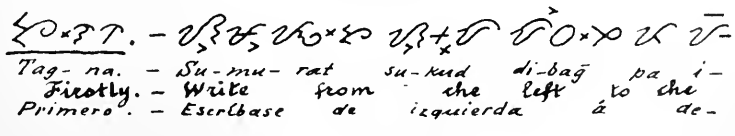 Tag-na. - Su-mu-rat su-kud di-bag̃ pa i-
Firstly. - Write from the left to the
Primero. - Escríbase de izquierda á de-